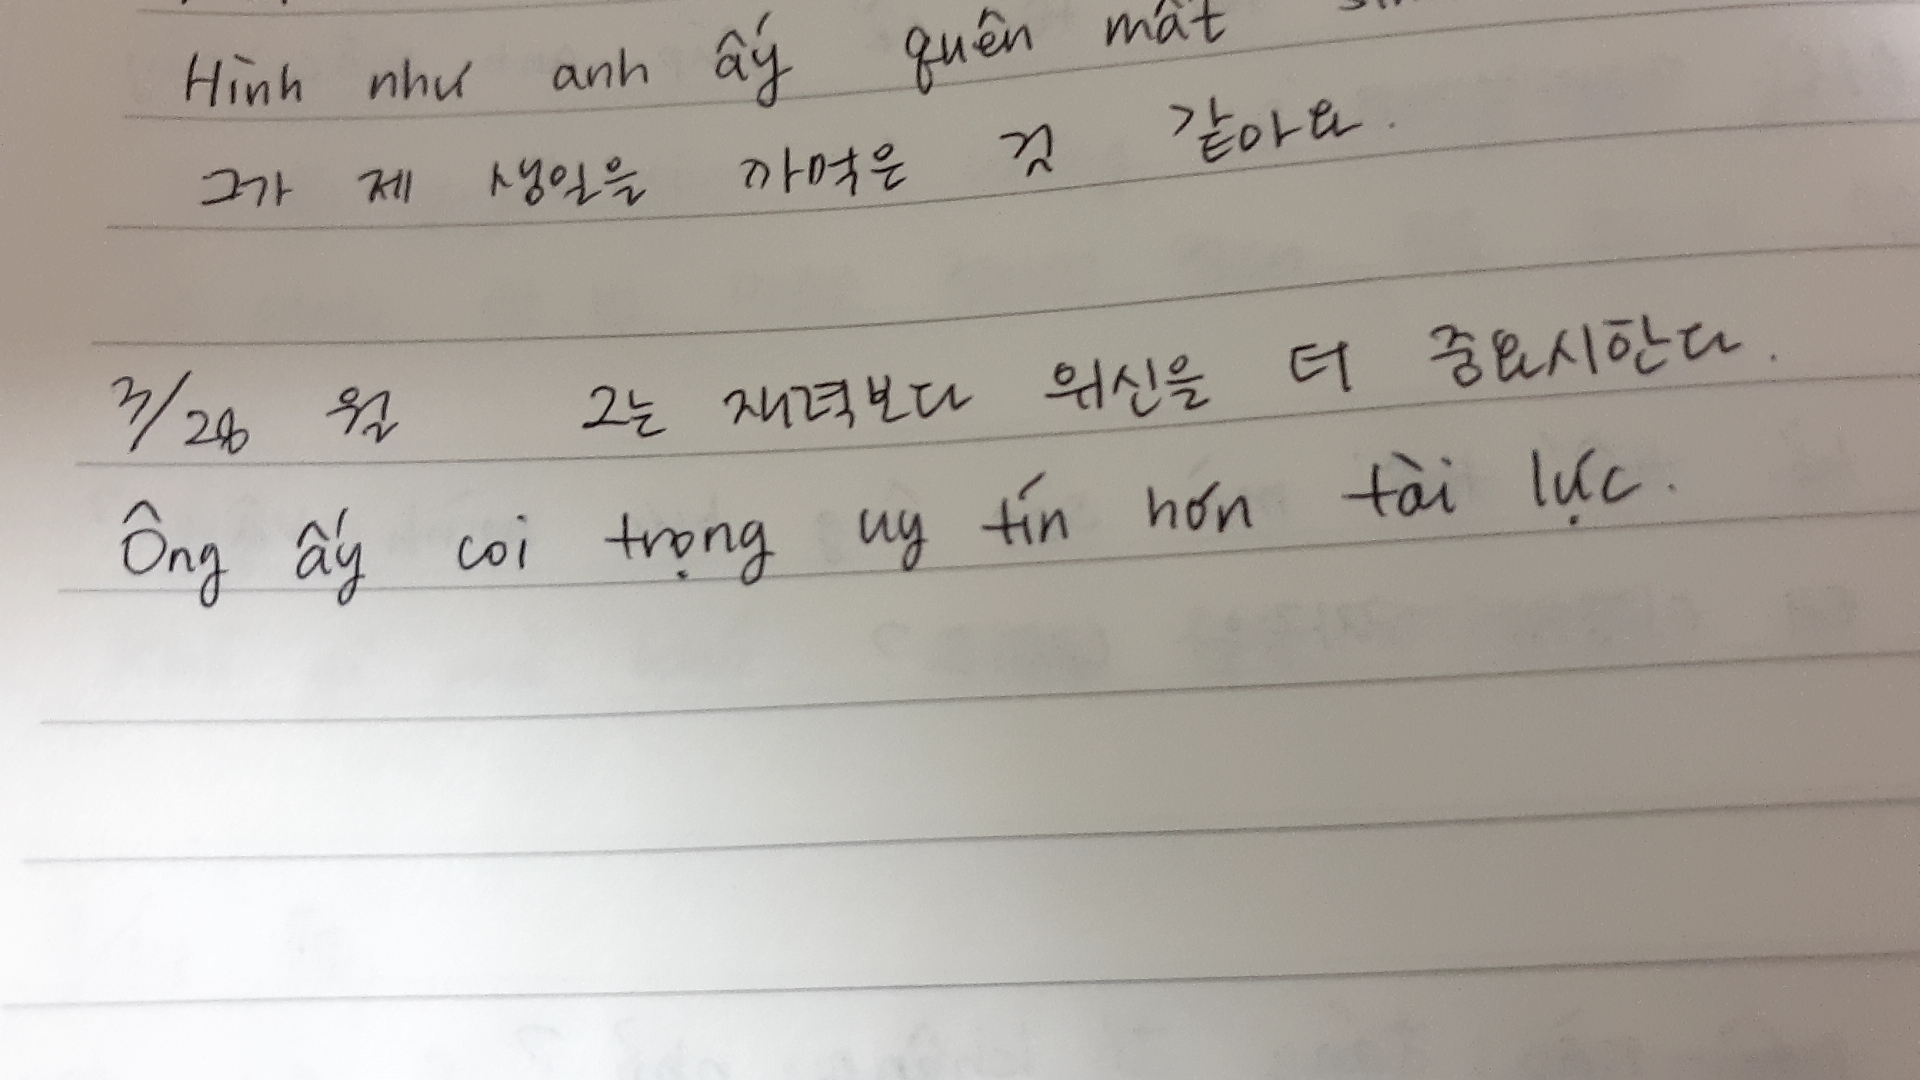 Hình như anh ấy quên mất
그가 제 생일을 까먹은 것 같아요.
3/28 월 그는 재력보다 위신을 더 중요시한다.
Ông ấy coi trọng uy tín hơn tài lực.